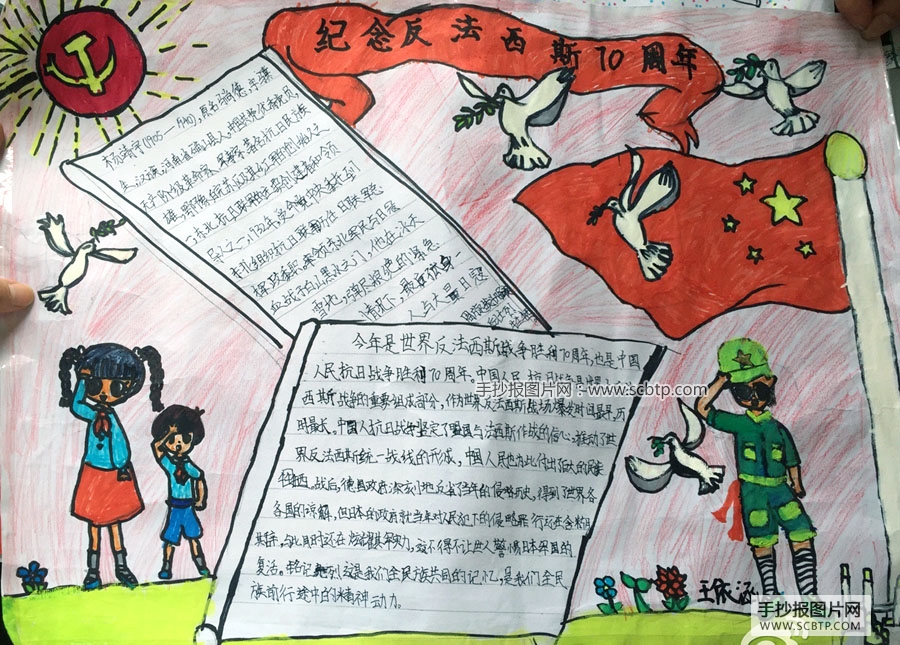 纪念反法西斯70周年
杨靖宇(1905—1940),原名马尚德,字骥
生,汉族,河南省确山县人,中国共产党优秀党员,
无产阶级革命家、军事家、著名抗日民族英
雄,鄂豫皖苏区及其红军的创始人之
一,东北抗日联军的主要创建者和领
导人之一。1932年,受命党中央委托到
东北组织抗日联军,历任抗日联军总
指挥政委职。率领东北军民与日寇
血战于白山黑水之间,他在冰天
雪地,弹尽粮绝的紧急
情况下,最后孤身一
人与大量日寇
今年是世界反法西斯战争胜利70周年,也是中国
人民抗日战争胜利70周年。中国人民抗日战争是
西斯战争的重要组成部分,作为世界反法西斯战场爆发时间最早,历
时最长。中国人抗日战争坚定了盟国与法西斯作战的信心,推动了世
界反法西斯统一战线的形成,中国人民也为此付出了巨大的民族
牺牲。战后,德国政府深刻地反省了当年的侵略历史,得到了世界各
各国的谅解,但日本的政府就当年对人民犯下的侵略罪行还在含糊
其辞,与此同时还在 其军实力。这不得不让世人警惕日本军国的
复活。铭记 这是我们全民族共同的记忆,是我们全民
族前行途中的精神动力。
手抄报图片网:www.scbtp.com
手抄报图片网
WWW.SCBTP.COM